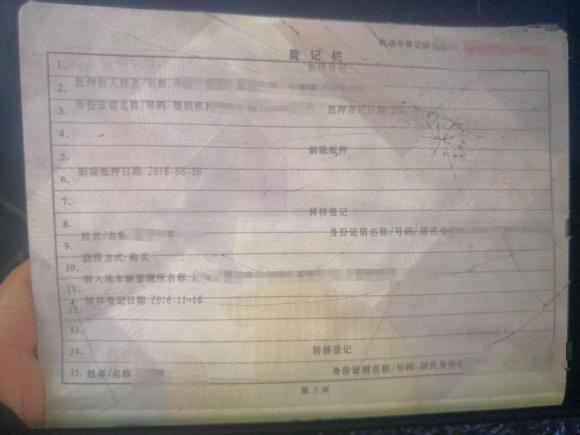 机动车登记证
登记栏
1. 抵押登记
2. 抵押权人姓名/名称:中
3. 身份证明名称/号码:组织机构 抵押登记日期:20
4.
5. 解除抵押
6. 解除抵押日期:2016-08-30
7.
8. 转移登记
9. 姓名/名称 身份证明名称/号码:居民身份
10. 获得方式:购买
11. 转入地车辆管理所名称:
12. 转移登记日期:2016-11-16
13.
14. 转移登记
15. 姓名/名称 身份证明名称/号码:居民身份证
第 3 页